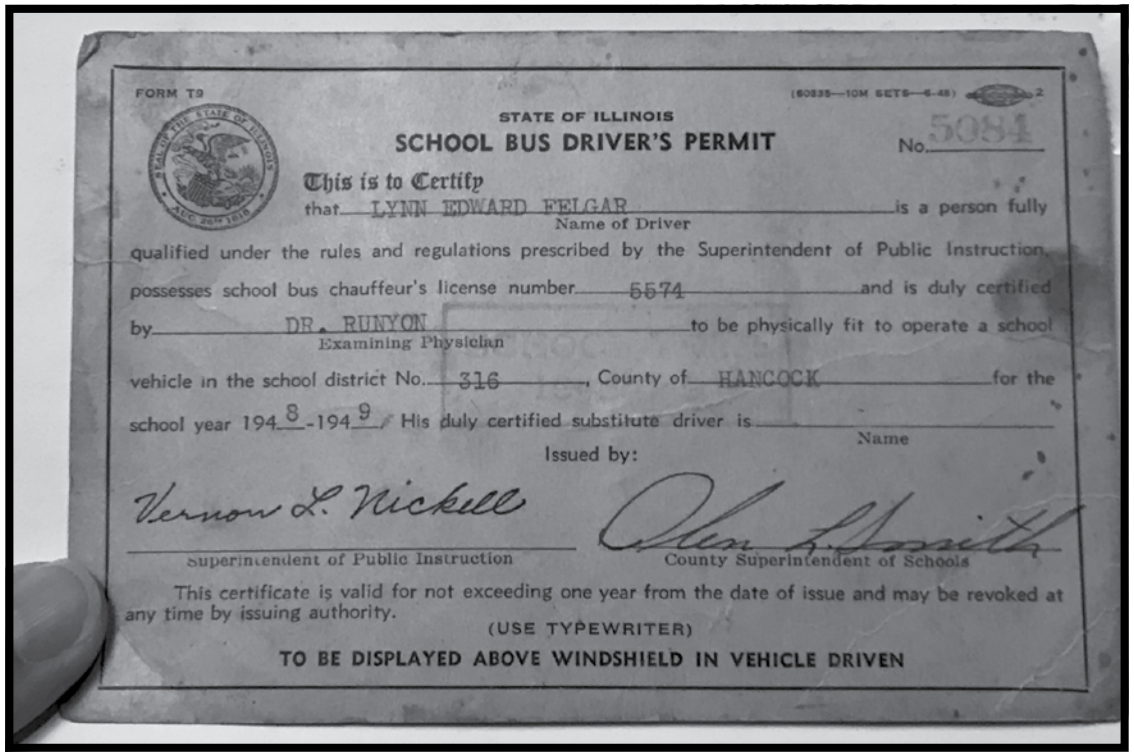 FORM T9
(60235—10M SETS—6-48) 2
STATE OF ILLINOIS
SCHOOL BUS DRIVER'S PERMIT
No. 5084
SEAL OF THE STATE OF ILLINOIS
AUG. 26TH 1818
This is to Certify
that LYNN EDWARD FELGAR is a person fully
Name of Driver
qualified under the rules and regulations prescribed by the Superintendent of Public Instruction,
possesses school bus chauffeur's license number 5574 and is duly certified
by DR. RUNYON to be physically fit to operate a school
Examining Physician
vehicle in the school district No. 316, County of HANCOCK for the
school year 1948-1949. His duly certified substitute driver is
Name
Issued by:
Vernon L. Nickell
Olen L. Smith
Superintendent of Public Instruction
County Superintendent of Schools
This certificate is valid for not exceeding one year from the date of issue and may be revoked at
any time by issuing authority.
(USE TYPEWRITER)
TO BE DISPLAYED ABOVE WINDSHIELD IN VEHICLE DRIVEN